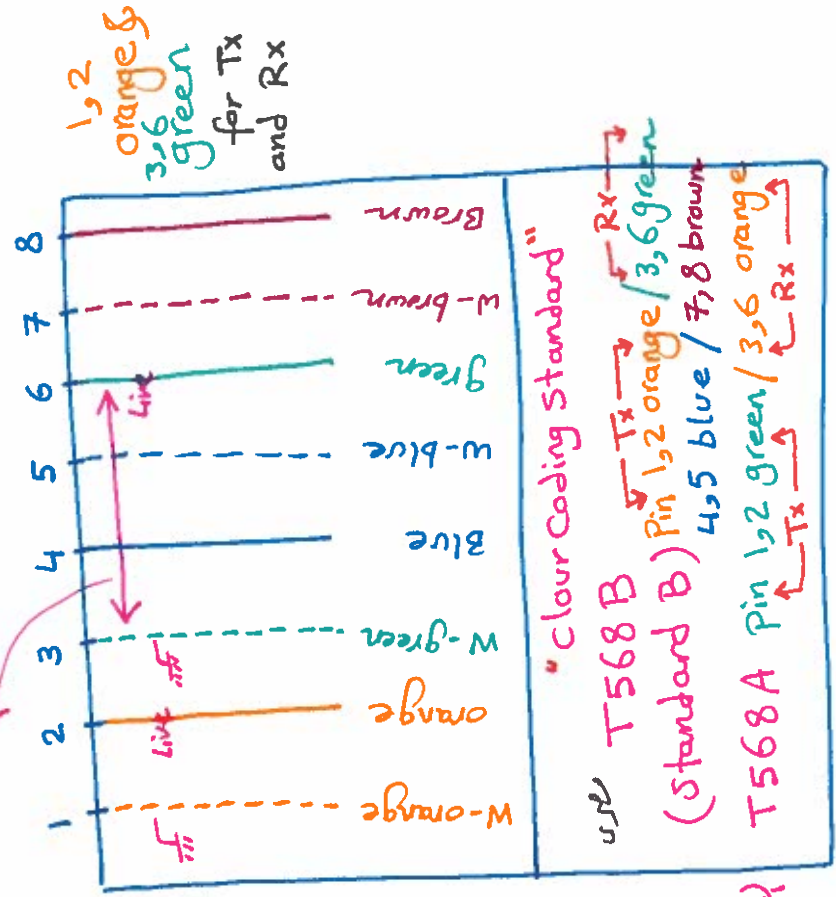 1,2
orange &
3,6
green
for Tx
and Rx
1 2 3 4 5 6 7 8
Live
Live
W-orange
orange
W-green
Blue
w-blue
green
w-brown
Brown
"Clour Coding Standard"
Tx Rx
use T568B Pin 1,2 orange / 3,6 green
(standard B) 4,5 blue / 7,8 brown
T568A Pin 1,2 green / 3,6 orange
Tx Rx